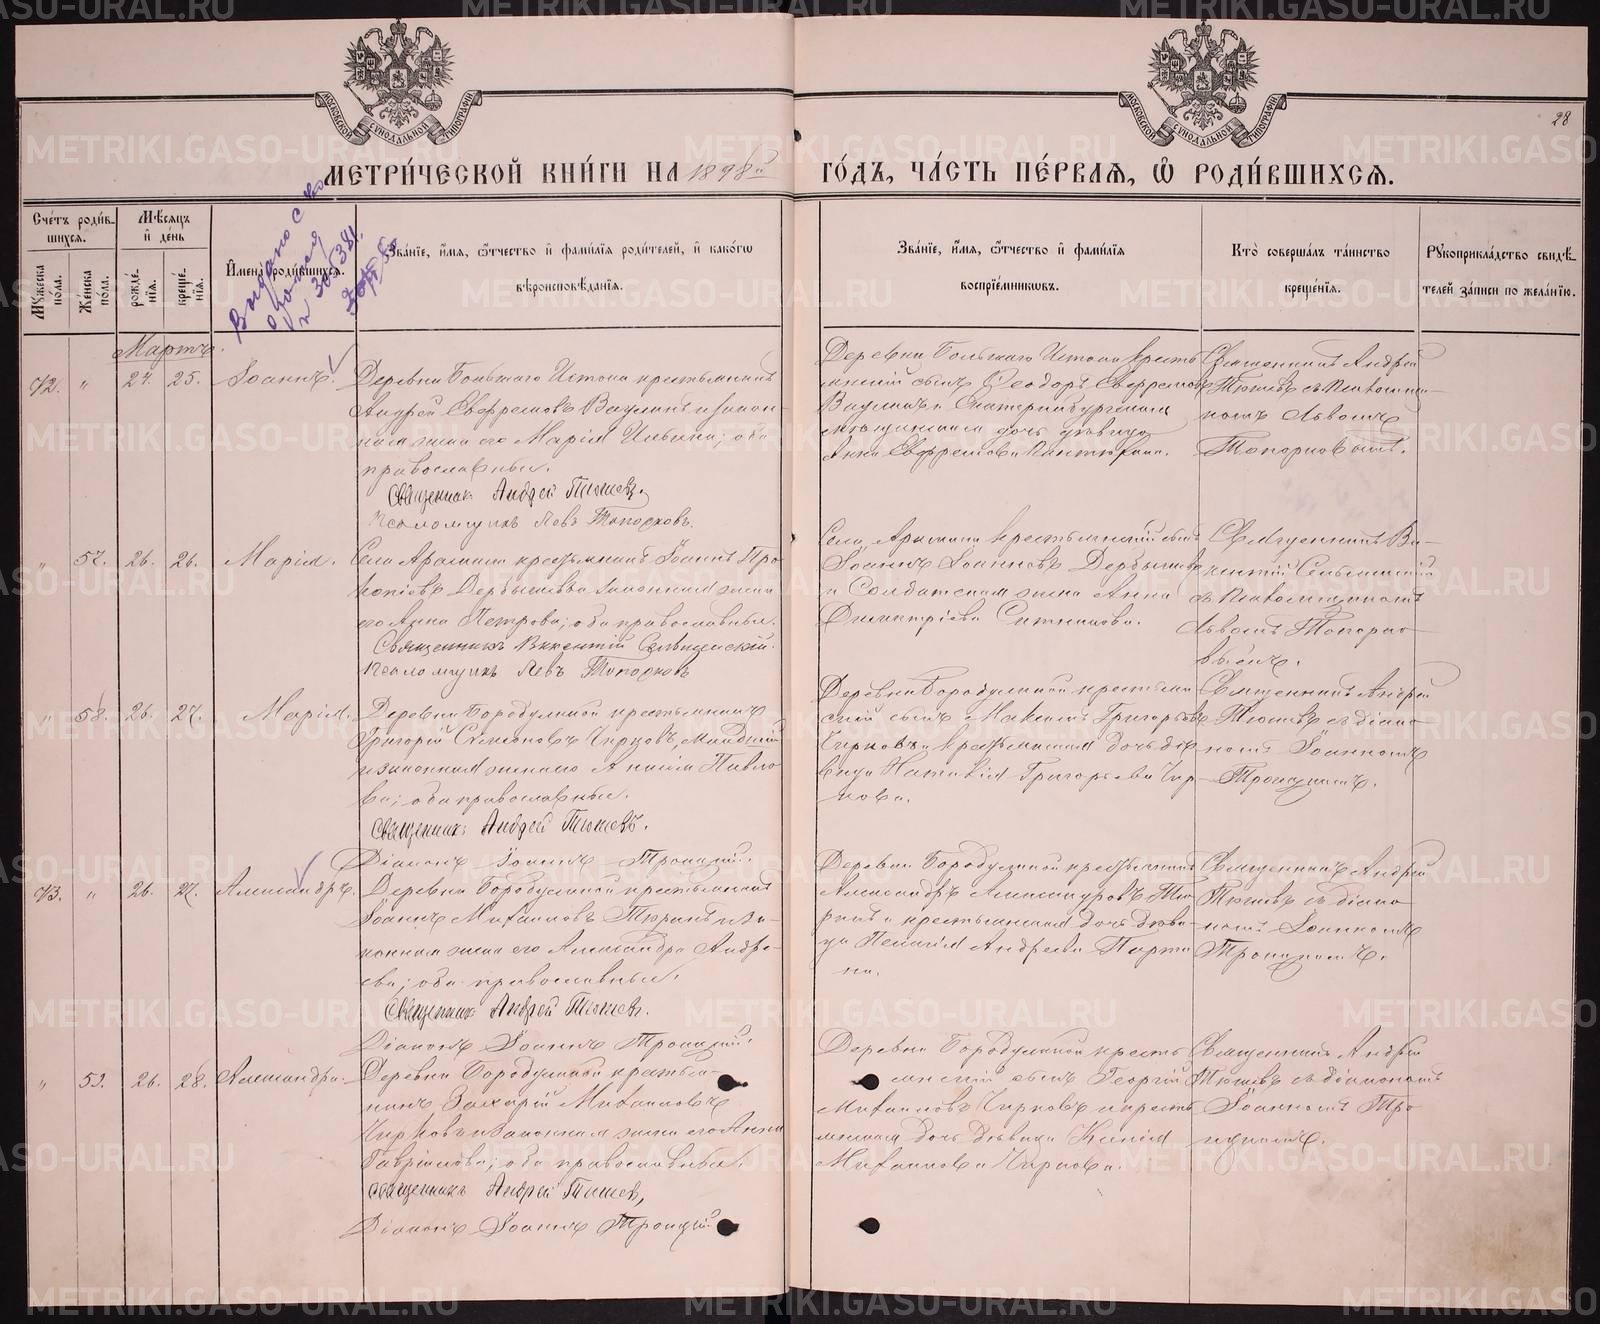 МОСКОВСКОЙ СѴНОДАЛЬНОЙ ТИПОГРАФІИ
МОСКОВСКОЙ СѴНОДАЛЬНОЙ ТИПОГРАФІИ
28
МЕТРИ́ЧЕСКОЙ КНИ́ГИ НА 1898й ГО́ДЪ, ЧА́СТЬ ПЕ́РВАЯ, Ѡ РОДИ́ВШИХСЯ.
Сче́тъ роди́в-
шихся.
Мѣ́сяцъ
и҆ де́нь
Му́жеска по́ла.
Же́нска по́ла.
рожде́нїя.
креще́нїя.
И҆мена̀ роди́вшихся.
Зва́нїе, и҆́мя, ѻ҆́тчество и҆ фами́лїя роди́телей, и҆ како́гѡ
вѣроисповѣ́данїя.
Зва́нїе, и҆́мя, ѻ҆́тчество и҆ фами́лїя
воспрїе́мниковъ.
Кто̀ соверша́лъ та́инство
креще́нїя.
Рꙋкоприкла́дство свидѣ́-
телей за́писи по жела́нїю.
Выдано с-во
Мартъ.
72. " 24. 25. Іоаннъ.
Деревни Большаго Истока крестьянинъ
Андрей Евфремовъ Ваулинъ и закон-
ная жена его Марія Ильина; оба
православные.
Священник Андрей Тюшев.
Псаломщикъ Левъ Топорковъ.
Деревни Большаго Истока кресть
янский сынъ Ѳеодоръ Евфремовъ
Ваулинъ и Екатеринбургская
мѣщанская дочь дѣвица
Анна Евфремова
Священникъ Андрей
Тюшевъ съ псаломщи-
комъ Львомъ
Топорковымъ.
" 57. 26. 26. Марія.
Села Арамили крестьянинъ Іоаннъ Про
копіевъ Дербышевъ и законная жена
его Анна Петрова; оба православные.
Священникъ Викентій Сельменскій.
Псаломщикъ Левъ Топорковъ
Села Арамили крестьянский сынъ
Іоаннъ Іоанновъ Дербышевъ
и Солдатская жена Анна
Димитріева Ситникова.
Священникъ Ви-
кентій Сельменскій
съ псаломщикомъ
Львомъ Топорко
вымъ.
" 58. 26. 27. Марія.
Деревни Бородулиной крестьянинъ
Григорій Симеоновъ Чирковъ, Младшій
и законная жена его Анисія Павло
ва; оба православные.
Священник Андрей Тюшевъ.
Діаконъ Іоаннъ Троицкій.
Деревни Бородулиной крестьян
скій сынъ Максимъ Григорьевъ
Чирковъ и крестьянская дочь дѣ
вица Наталія Григорьева Чир
кова.
Священникъ Андрей
Тюшевъ съ діако
номъ Іоанномъ
Троицкимъ.
73. " 26. 27. Александръ.
Деревни Бородулиной крестьянинъ
Іоаннъ Михаиловъ Тюринъ и за-
конная жена его Александра Андре-
ева; оба православные.
Священник Андрей Тюшев.
Діаконъ Іоаннъ Троицкій.
Деревни Бородулиной крестьянинъ
Александръ Александровъ Тю
ринъ и крестьянская дочь дѣви-
ца Пелагія Андреева Парти
на.
Священникъ Андрей
Тюшевъ съ діако
номъ Іоанномъ
Троицкимъ.
" 59. 26. 28. Александра.
Деревни Бородулиной крестья-
нинъ Захарій Михаиловъ
Чирковъ и законная жена его Анна
Гавріилова; оба православные.
Священникъ Андрей Тюшев,
Діаконъ Іоаннъ Троицкій
Деревни Бородулиной кресть
янский сынъ Георгій
Михаиловъ Чирковъ и кресть
янская дочь дѣвица Ксенія
Михаилова Чиркова.
Священникъ Андрей
Тюшевъ съ діакономъ
Іоанномъ Тро
ицкимъ.
METRIKI.GASO-URAL.RU